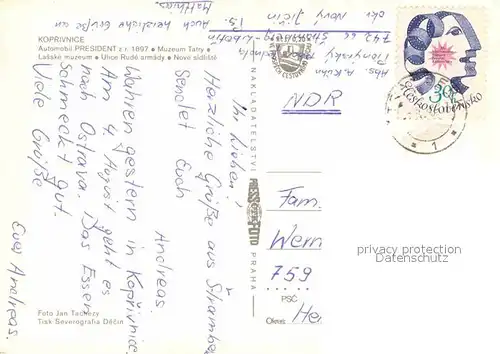 KOPŘIVNICE
Automobil PRESIDENT z r. 1897 • Muzeum Tatry •
Lašské muzeum • Ulice Rudé armády • Nové sídliště
Auch herzliche Grüße an
Matthias.
Ihr Lieben!
Herzliche Grüße aus Stramberk
Sendet Euch
Andreas.
Waren gestern in Kopřivnice.
Am 4. August geht es
nach Ostrava. Das Essen
schmeckt gut.
Viele Grüße
Euer Andreas.
Abs. A. Kühn
742 66
okr. Nový Jičín
NDR
Fam.
Wern
759
PSČ
He
Okres
30
ČESKOSLOVENSKO
1
NAKLADATELSTVÍ
PRESSFOTO
PRAHA
privacy protection
Datenschutz
Foto Jan Tachezy
Tisk Severografia Děčín